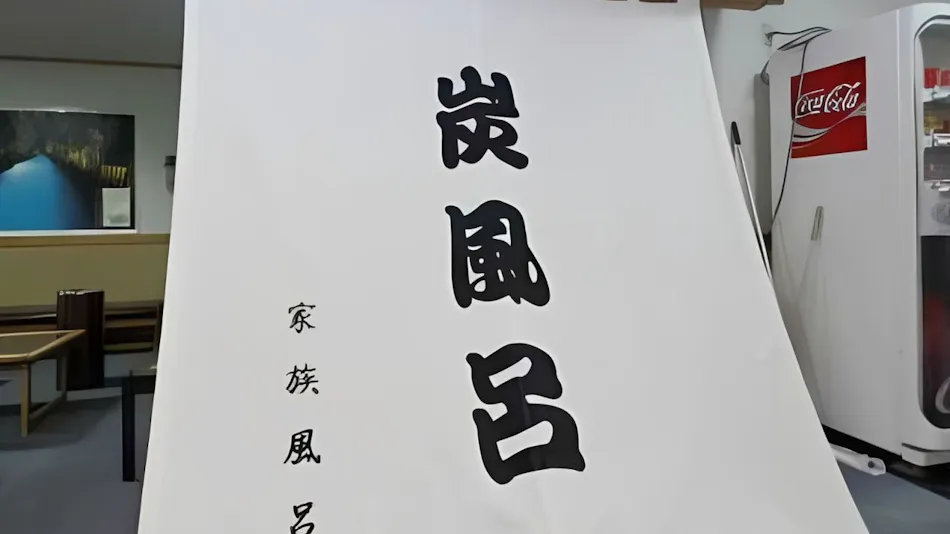 炭風呂
家族風呂
Coca-Cola